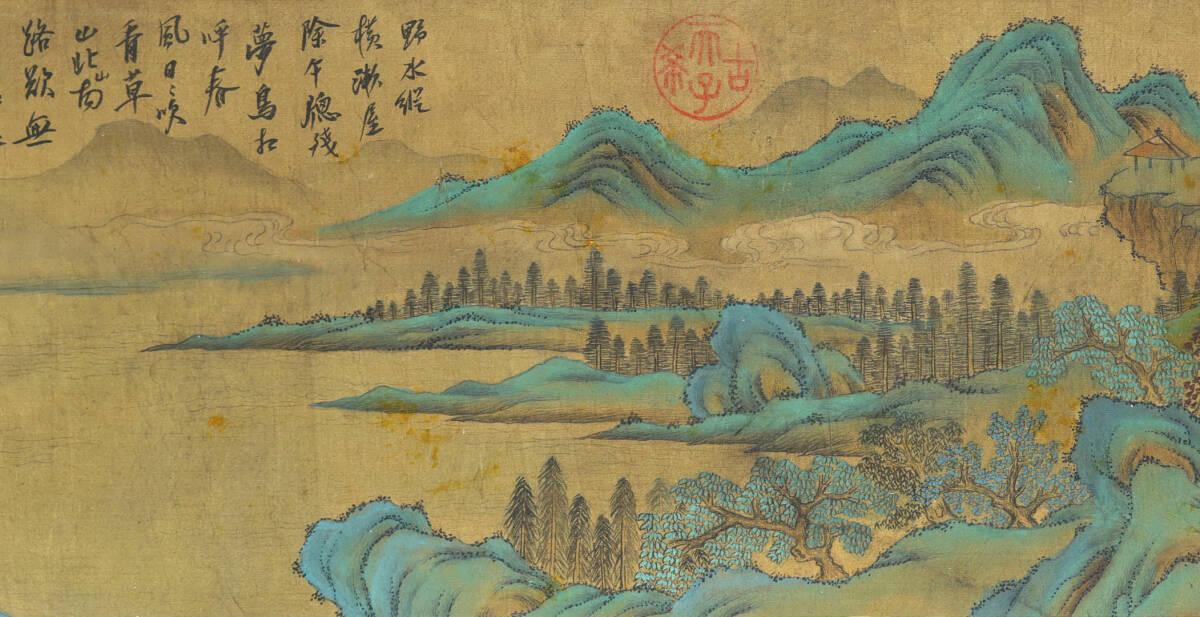 野水縱
橫漱屋
除午牕殘
夢鳥相
呼春
風日〻吹
香草
山北山南
路欲無
古希天子